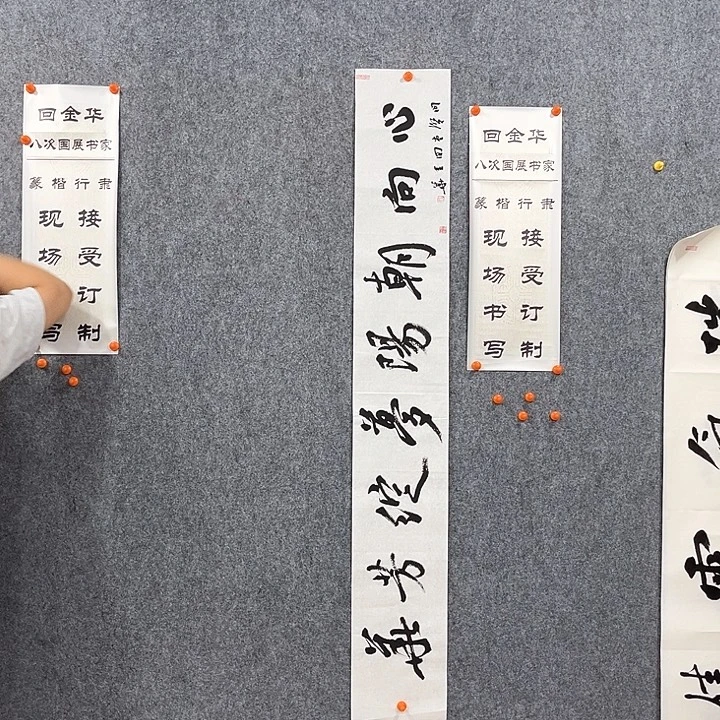 回金华
八次国展书家
篆楷行隶
现场写
接受订制
心向朝陽夢綻芳華
回金华
八次国展书家
篆楷行隶
现场书写
接受订制